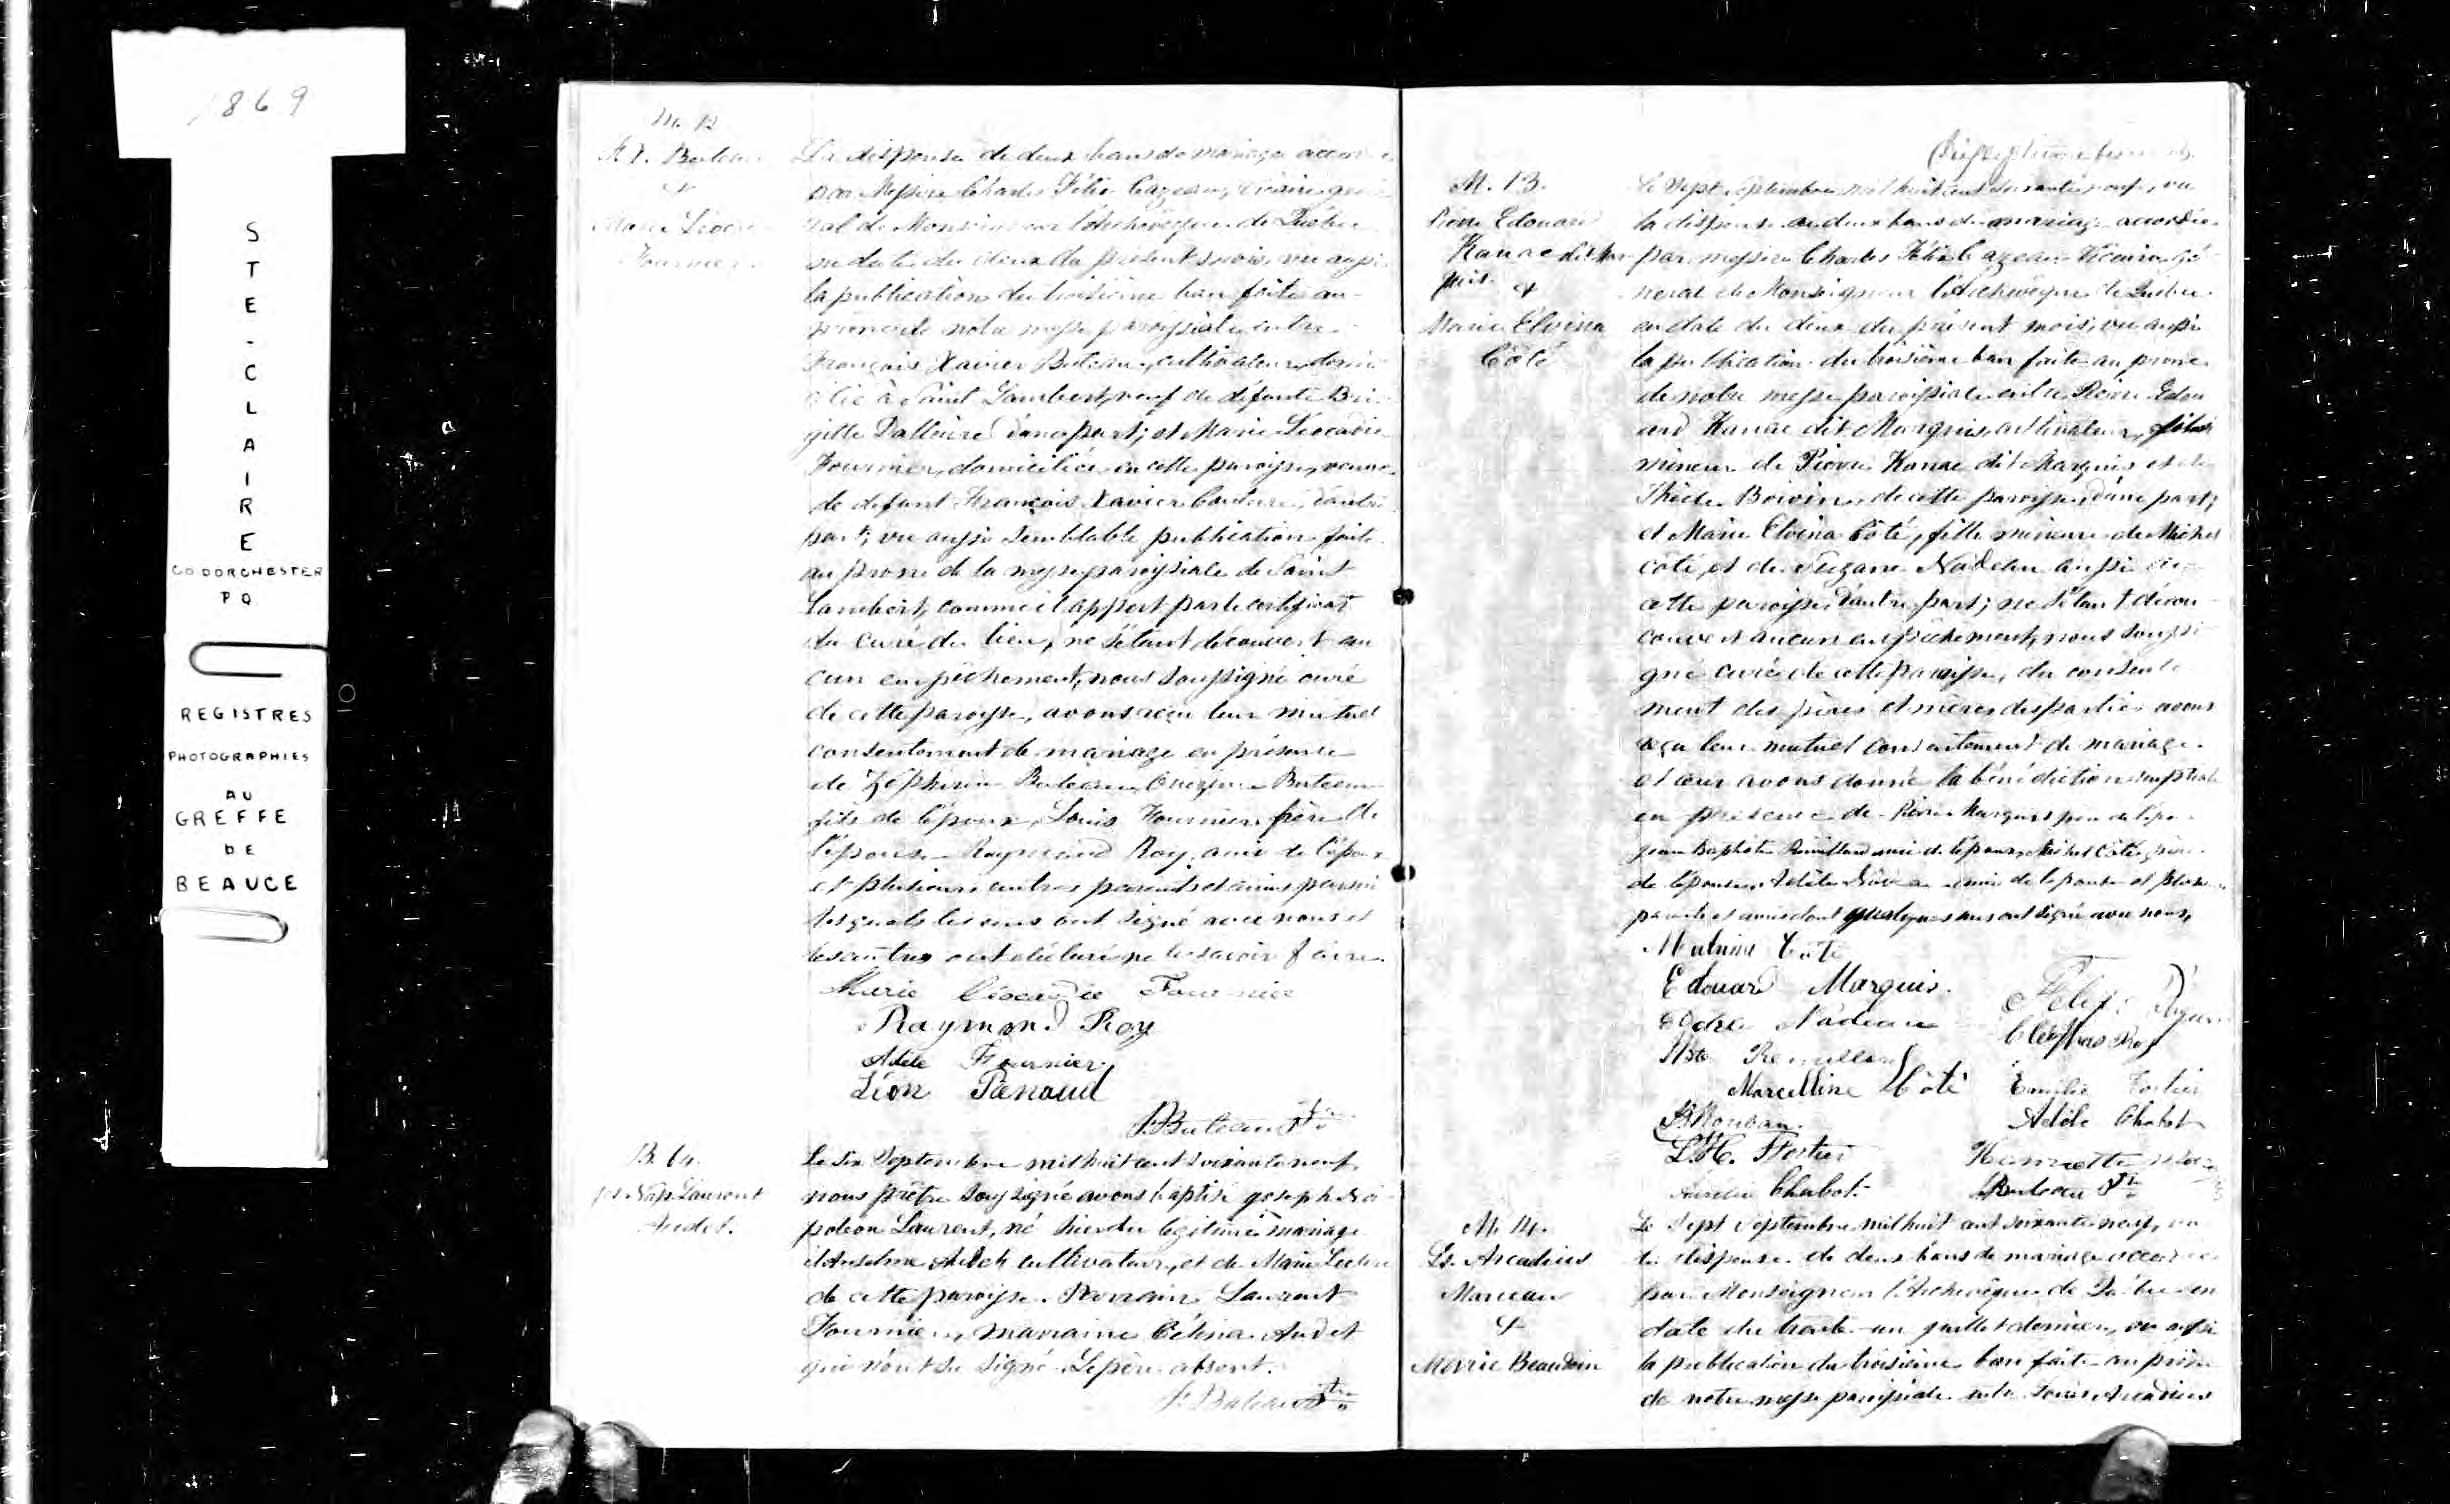 1869
S
T
E
-
C
L
A
I
R
E
CO DORCHESTER
P Q
REGISTRES
PHOTOGRAPHIES
AU
GREFFE
DE
BEAUCE
M. 12
&
Fournier.
La dispense de deux bans de mariage
par Messire Charles Félix Cazeau,
ral de Monseigneur l'Archevêque de Québec
en date du deux du présent mois, vu aussi
la publication du troisième ban faite au
prône de notre messe paroissiale entre
François Xavier Buteau, cultivateur, domi
cilié à Saint Lambert, veuf de défunte Bri
gitte Dallaire d'une part; et Marie Léocadie
Fournier, domiciliée en cette paroisse, veuve
de défunt François Xavier Couture, d'autre
part, vu aussi semblable publication faite
au prône de la messe paroissiale de Saint
Lambert, comme il appert par le certificat
du curé du lieu, ne s'étant découvert au
cun empêchement, nous soussigné curé
de cette paroisse, avons reçu leur mutuel
consentement de mariage en présence
de Zéphirin Buteau, Onézime Buteau
fils de l'époux, Louis Fournier frère de
l'épouse Raymond Roy, ami de l'époux
et plusieurs autres parents et amis parmi
lesquels les uns ont signé avec nous et
les autres ont déclaré ne le savoir faire.
Marie Léocadie Fournier
Raymond Roy
Adèle Fournier
Léon Renaud
Buteau Ptre
B. 64.
Js. Nap. Laurent
Audet.
Le six Septembre mil huit cent soixante neuf
nous prêtre soussigné avons baptisé Joseph Na
poléon Laurent, né hier du légitime mariage
d'Anselme Audet cultivateur, et de Marie
de cette paroisse. Parrain Laurent
Fournier, marraine Célina Audet
qui n'ont su signé. Le père absent.
Buteau Ptre
M. 13.
Pierre Edouard
Kanac dit Mar
quis. &
Marie Elvina
Côté
Le sept Septembre mil huit cent soixante neuf, vu
la dispense de deux bans de mariage accordée
par messire Charles Félix Cazeau Vicaire Gé
néral de Monseigneur l'Archevêque de Québec
en date du deux du présent mois, vu aussi
la publication du troisième ban faite au prône
de notre messe paroissiale entre Pierre Edou
ard Kanac dit Marquis, cultivateur, fils
mineur de Pierre Kanac dit Marquis et de
Thècle Boivin, de cette paroisse, d'une part;
et Marie Elvina Côté, fille mineure de Michel
côté, et de Suzane Nadeau aussi de
cette paroisse d'autre part; ne s'étant décou
couvert aucun empêchement, nous soussi
gné curé de cette paroisse, du consente
ment des pères et mères des parties avons
reçu leur mutuel consentement de mariage
et leur avons donné la bénédiction nuptiale
en présence de Pierre Marquis père de l'époux
Jean Baptiste Rémillard ami de l'époux, Michel Côté père
de l'épouse, Adèle amie de l'épouse et plusieurs
parents et amis dont quelques uns ont signé avec nous,
Malvina Côté
Edouard Marquis.
Nadeau
Félix
Cléophas Roy
Jbte Remillard
Marcelline Côté
Emilie Fortier
Adèle Chabot
L. H. Fortier
Henriette
Aurélie Chabot.
Buteau Ptre
M. 14.
Ls. Arcadius
Marceau
&
Marie Beaudoin
Le Sept Septembre mil huit cent soixante neuf, vu
la dispense de deux bans de mariage accordée
par Monseigneur l'Archevêque de Québec en
date du trente-un juillet dernier, vu aussi
la publication du troisième ban faite au prône
de notre messe paroissiale entre Louis Arcadius